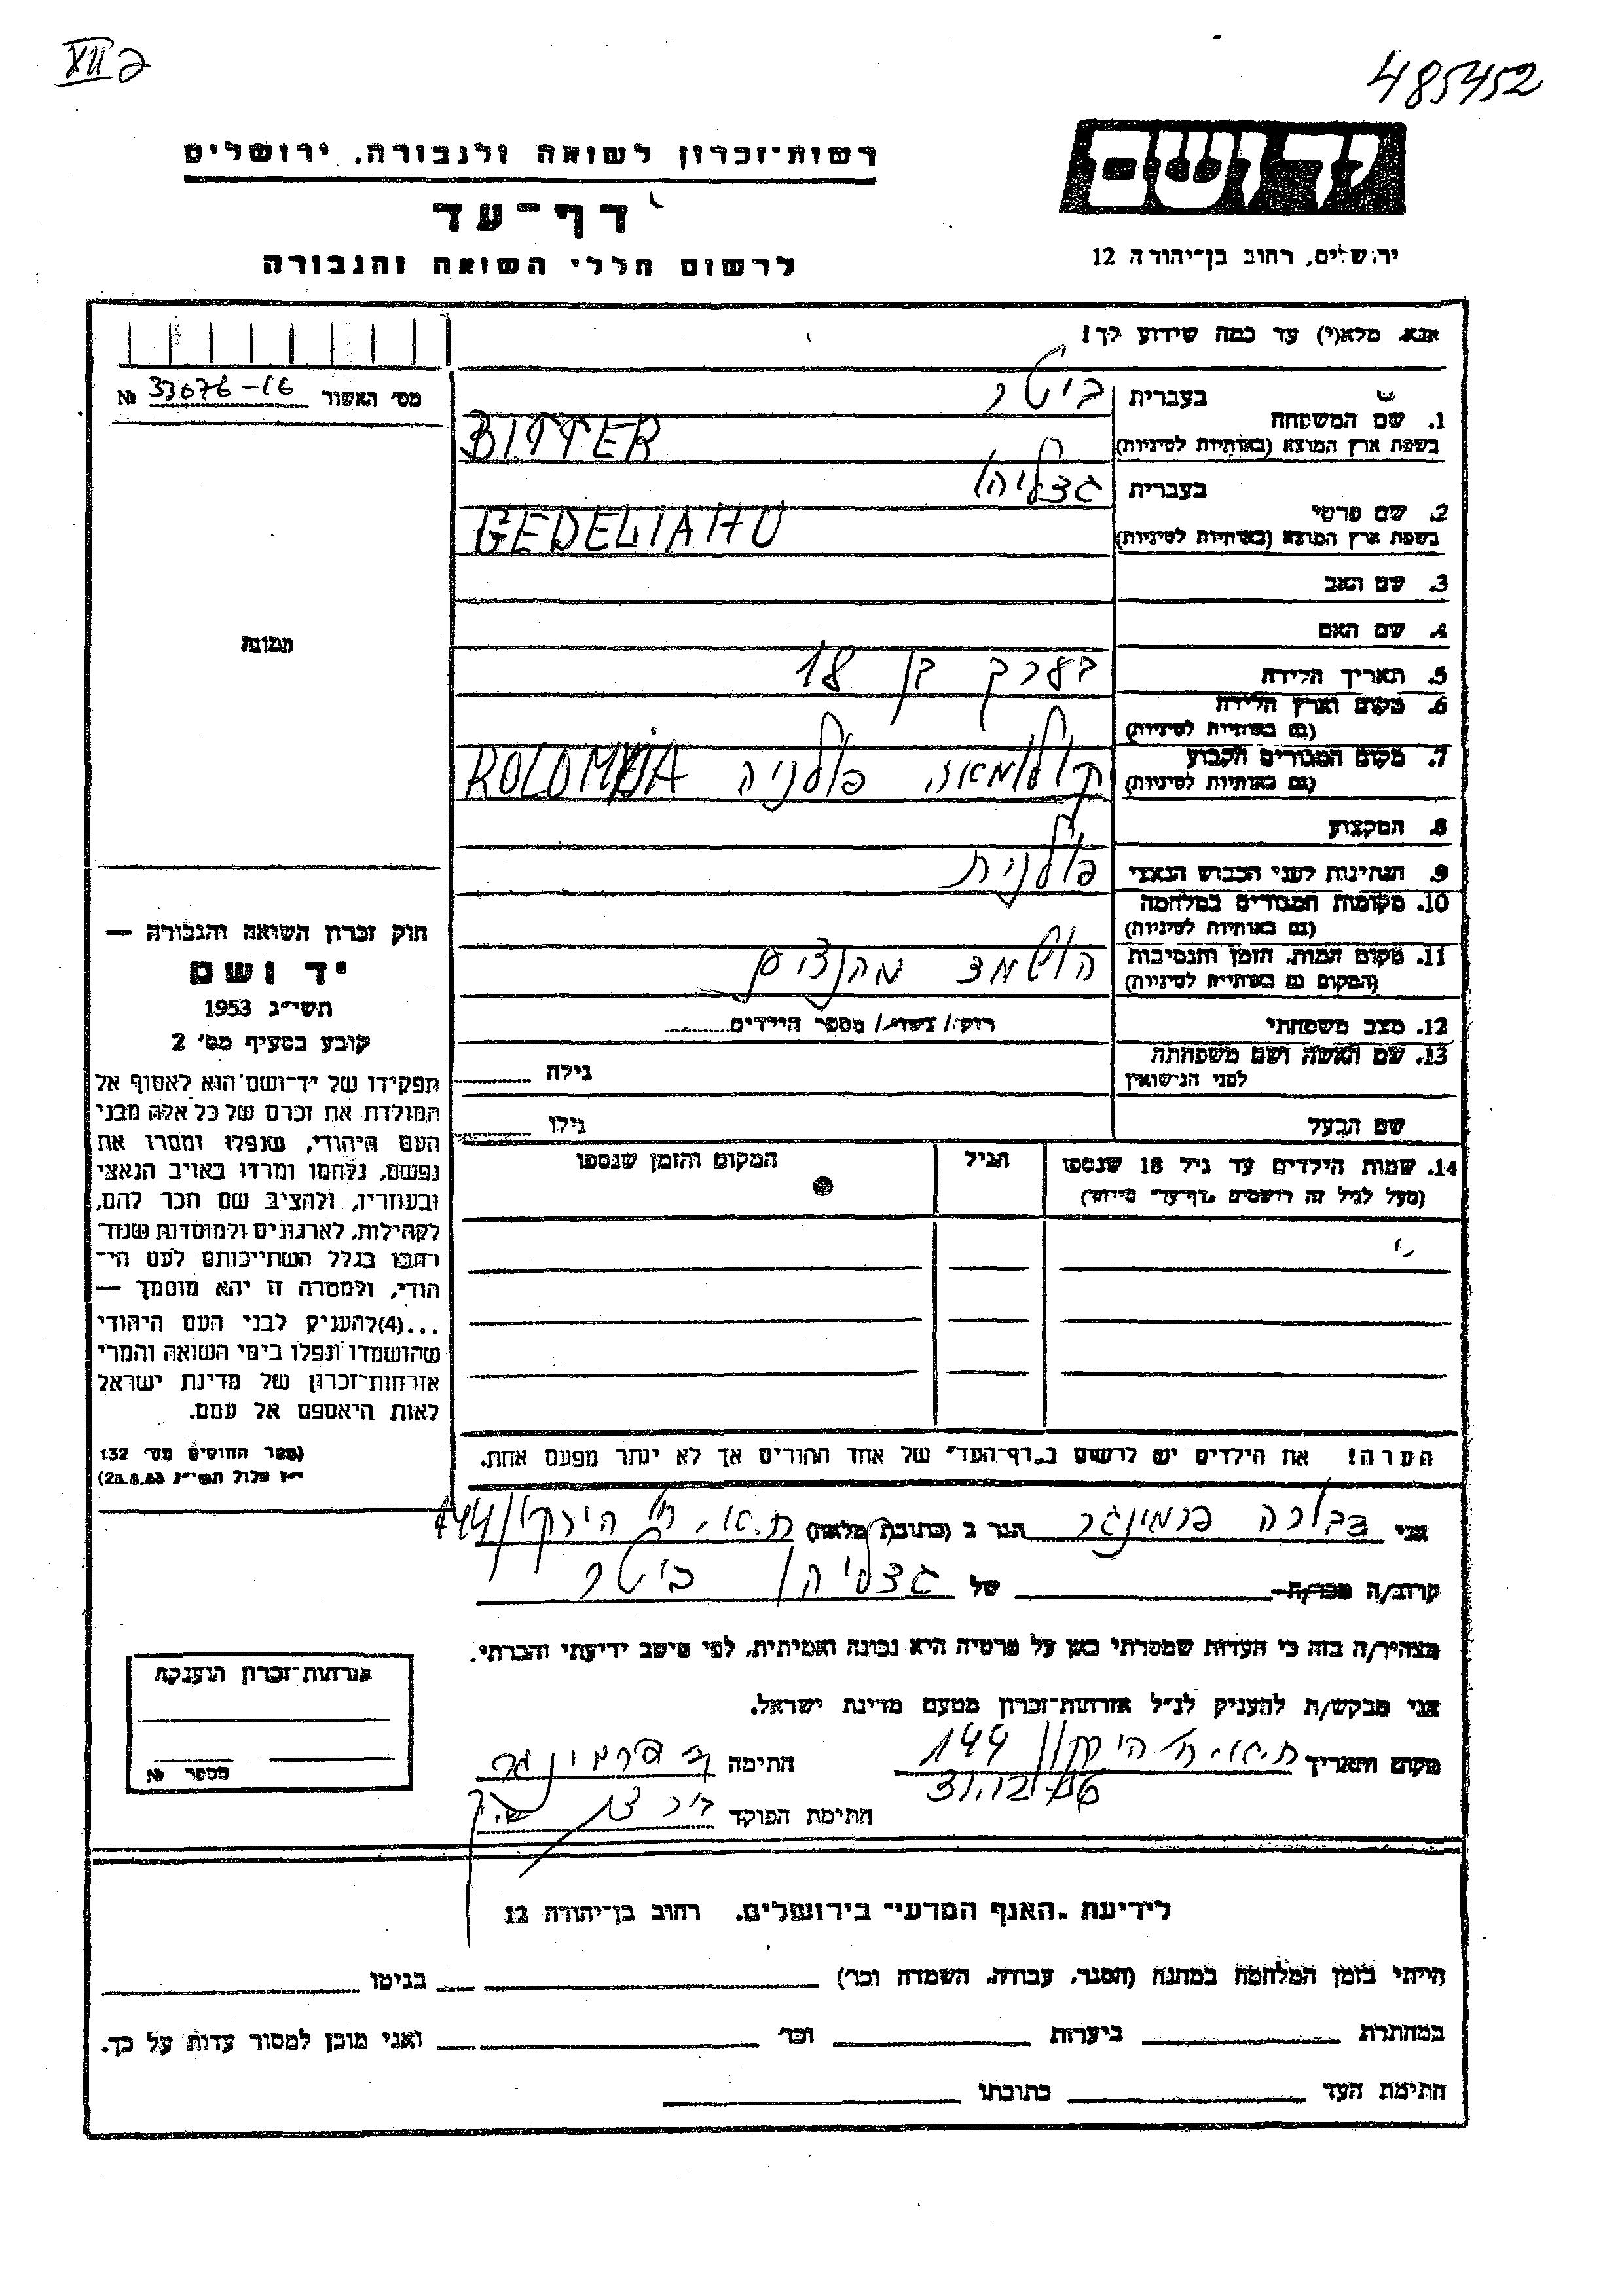 XII ג
485452
יד ושם
רשות־זכרון לשואה ולגבורה, ירושלים
דף־עד
ירושלים, רחוב בן־יהודה 12
לרשום חללי השואה והגבורה
אנא, מלא(י) עד כמה שידוע לך!
מס׳ האשור 33676-16 №
1. שם המשפחה
בעברית ביטר
בשפת ארץ המוצא (באותיות לטיניות) BITTER
2. שם פרטי
בעברית גדליהו
בשפת ארץ המוצא (באותיות לטיניות) GEDELIAHU
3. שם האב
4. שם האם
תמונה
5. תאריך הלידה בערך בן 18
6. מקום וארץ הלידה
(גם באותיות לטיניות)
7. מקום המגורים הקבוע
(גם באותיות לטיניות) קולומאה פולניה KOLOMEJA
8. המקצוע
9. הנתינות לפני הכבוש הנאצי פולנית
10. מקומות המגורים במלחמה
(גם באותיות לטיניות)
11. מקום המות, הזמן והנסיבות
(המקום גם באותיות לטיניות) הושמד מהנצים
12. מצב משפחתי רוק/ נשוי/ מספר הילדים
13. שם האשה ושם משפחתה
לפני הנישואין גילה
שם הבעל גילו
14. שמות הילדים עד גיל 18 שנספו
(מעל לגיל זה רושמים „דף־עד״ מיוחד)
הגיל
המקום והזמן שנספו
הערה! את הילדים יש לרשום ב„דף־העד״ של אחד ההורים אך לא יותר מפעם אחת.
חוק זכרון השואה והגבורה —
יד ושם
תשי״ג 1953
קובע בסעיף מס׳ 2
תפקידו של יד־ושם הוא לאסוף אל
המולדת את זכרם של כל אלה מבני
העם היהודי, שנפלו ומסרו את
נפשם, נלחמו ומרדו באויב הנאצי
ובעוזריו, ולהציב שם וזכר להם,
לקהילות, לארגונים ולמוסדות שנח־
רחבו בגלל השתייכותם לעם הי־
הודי, ולמטרה זו יהא מוסמך —
...(4)להעניק לבני העם היהודי
שהושמדו ונפלו בימי השואה והמרי
אזרחות־זכרון של מדינת ישראל
לאות היאספם אל עמם.
(ספר החוקים מס׳ 132
י״ז אלול תשי״ג 28.8.53)
אני דבורה פרמינגר הגר ב (כתובת מלאה) ת.א. רח׳ הירקון 144
קרוב/ה מכר/ה של גדליהו ביטר
מצהיר/ה בזה כי העדות שמסרתי כאן על פרטיה היא נכונה ואמיתית, לפי מיטב ידיעתי והכרתי.
אני מבקש/ת להעניק לנ״ל אזרחות־זכרון מטעם מדינת ישראל.
מקום ותאריך ת.א. רח׳ הירקון 144 31.12.56 חתימה ד פרמינגר
חתימת הפוקד
אזרחות־זכרון הוענקה
מספר №
לידיעת „האגף המדעי״ בירושלים, רחוב בן־יהודה 12
הייתי בזמן המלחמה במחנה (הסגר, עבודה, השמדה וכו׳) בגיטו
במחתרת ביערות וכו׳ ואני מוכן למסור עדות על כך.
חתימת העד כתובתו